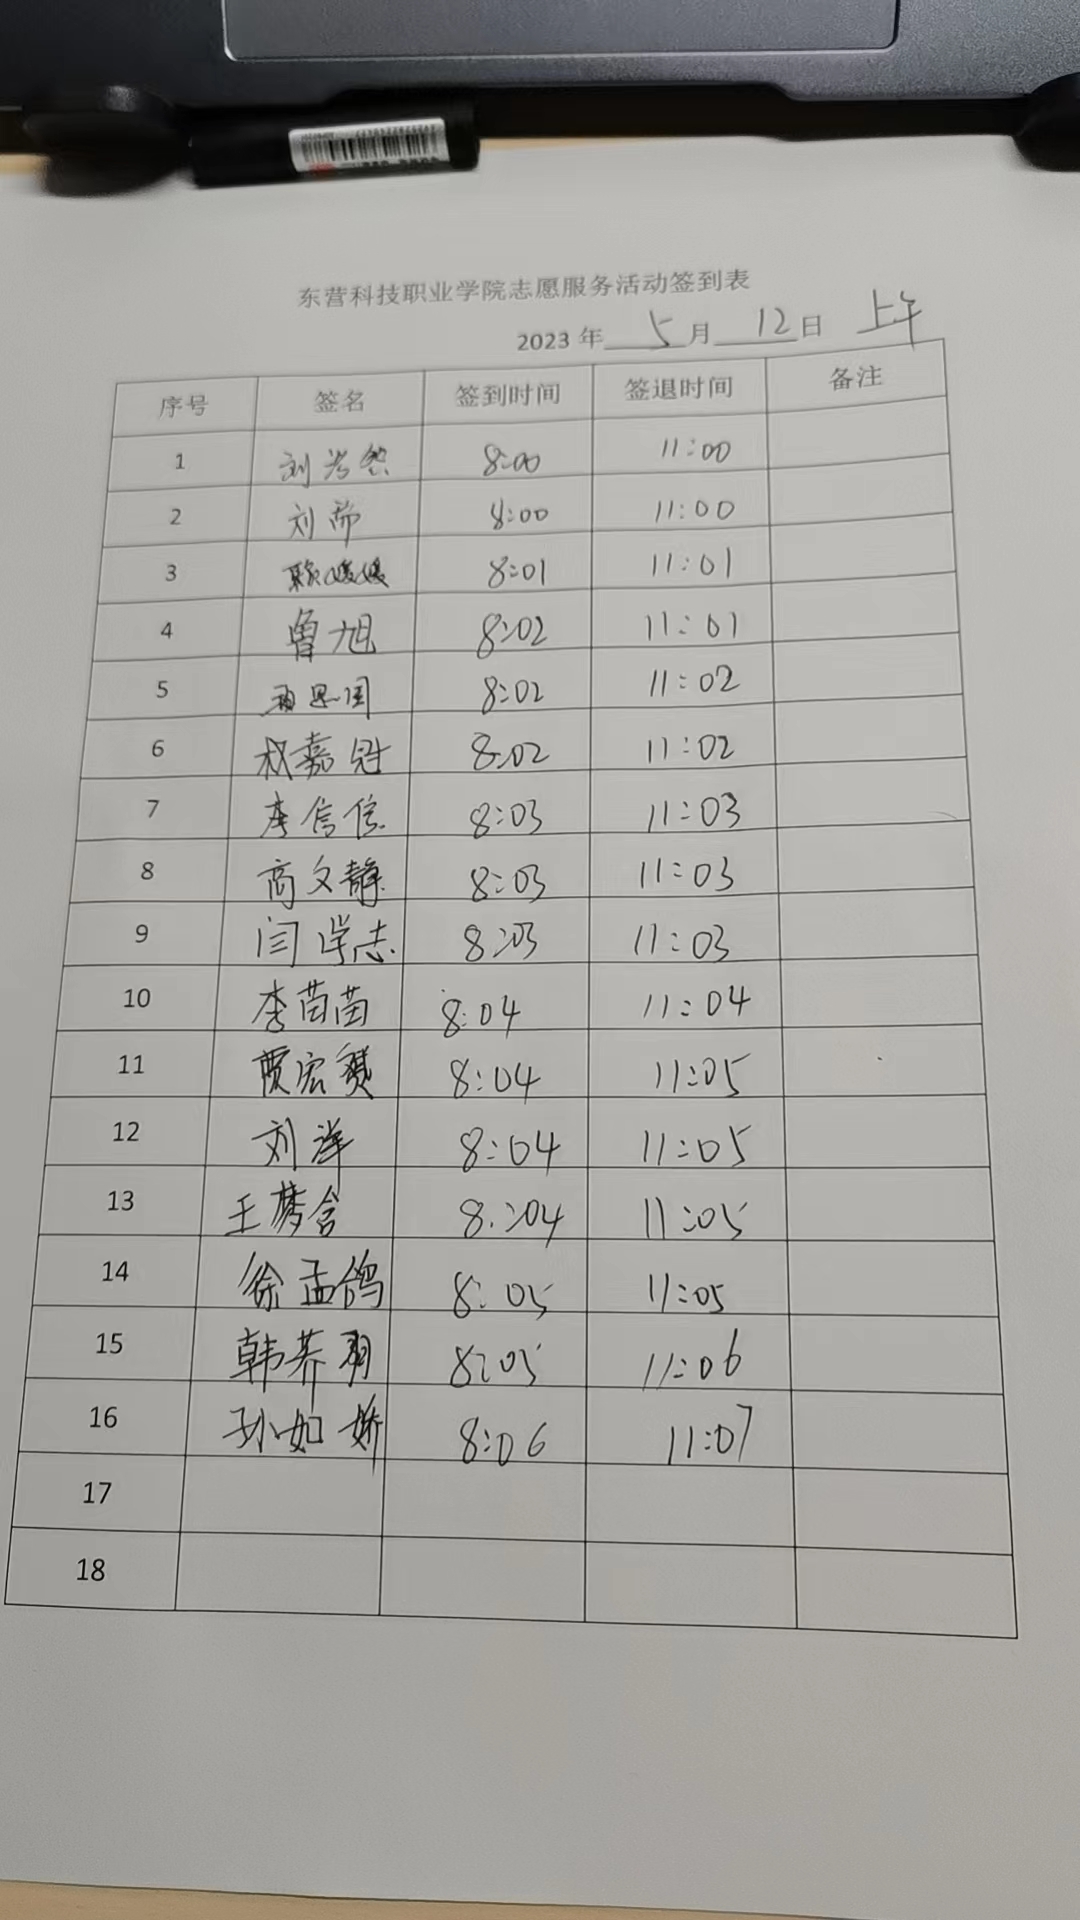 东营科技职业学院志愿服务活动签到表
2023 年 5 月 12 日 上午
序号 签名 签到时间 签退时间 备注
1 刘 8:00 11:00
2 刘 8:00 11:00
3 媛媛 8:01 11:01
4 曾旭 8:02 11:01
5 8:02 11:02
6 权嘉冠 8:02 11:02
7 李信信 8:03 11:03
8 高文静 8:03 11:03
9 闫学志 8:03 11:03
10 李苗苗 8:04 11:04
11 贾宏赟 8:04 11:05
12 刘洋 8:04 11:05
13 王梦含 8:04 11:05
14 徐孟鸽 8:05 11:05
15 韩荞羽 8:05 11:06
16 孙如娇 8:06 11:07
17
18